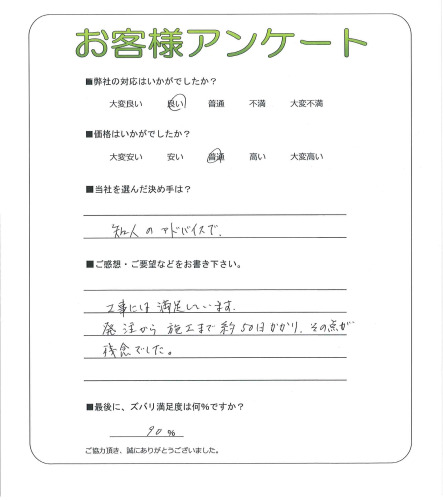 お客様アンケート
■弊社の対応はいかがでしたか？
大変良い 良い 普通 不満 大変不満
■価格はいかがでしたか？
大変安い 安い 普通 高い 大変高い
■当社を選んだ決め手は？
知人のアドバイスで.
■ご感想・ご要望などをお書き下さい。
工事には満足しています.
発注から施工まで約50日かかり、その点が
残念でした。
■最後に、ズバリ満足度は何%ですか？
90 %
ご協力頂き、誠にありがとうございました。